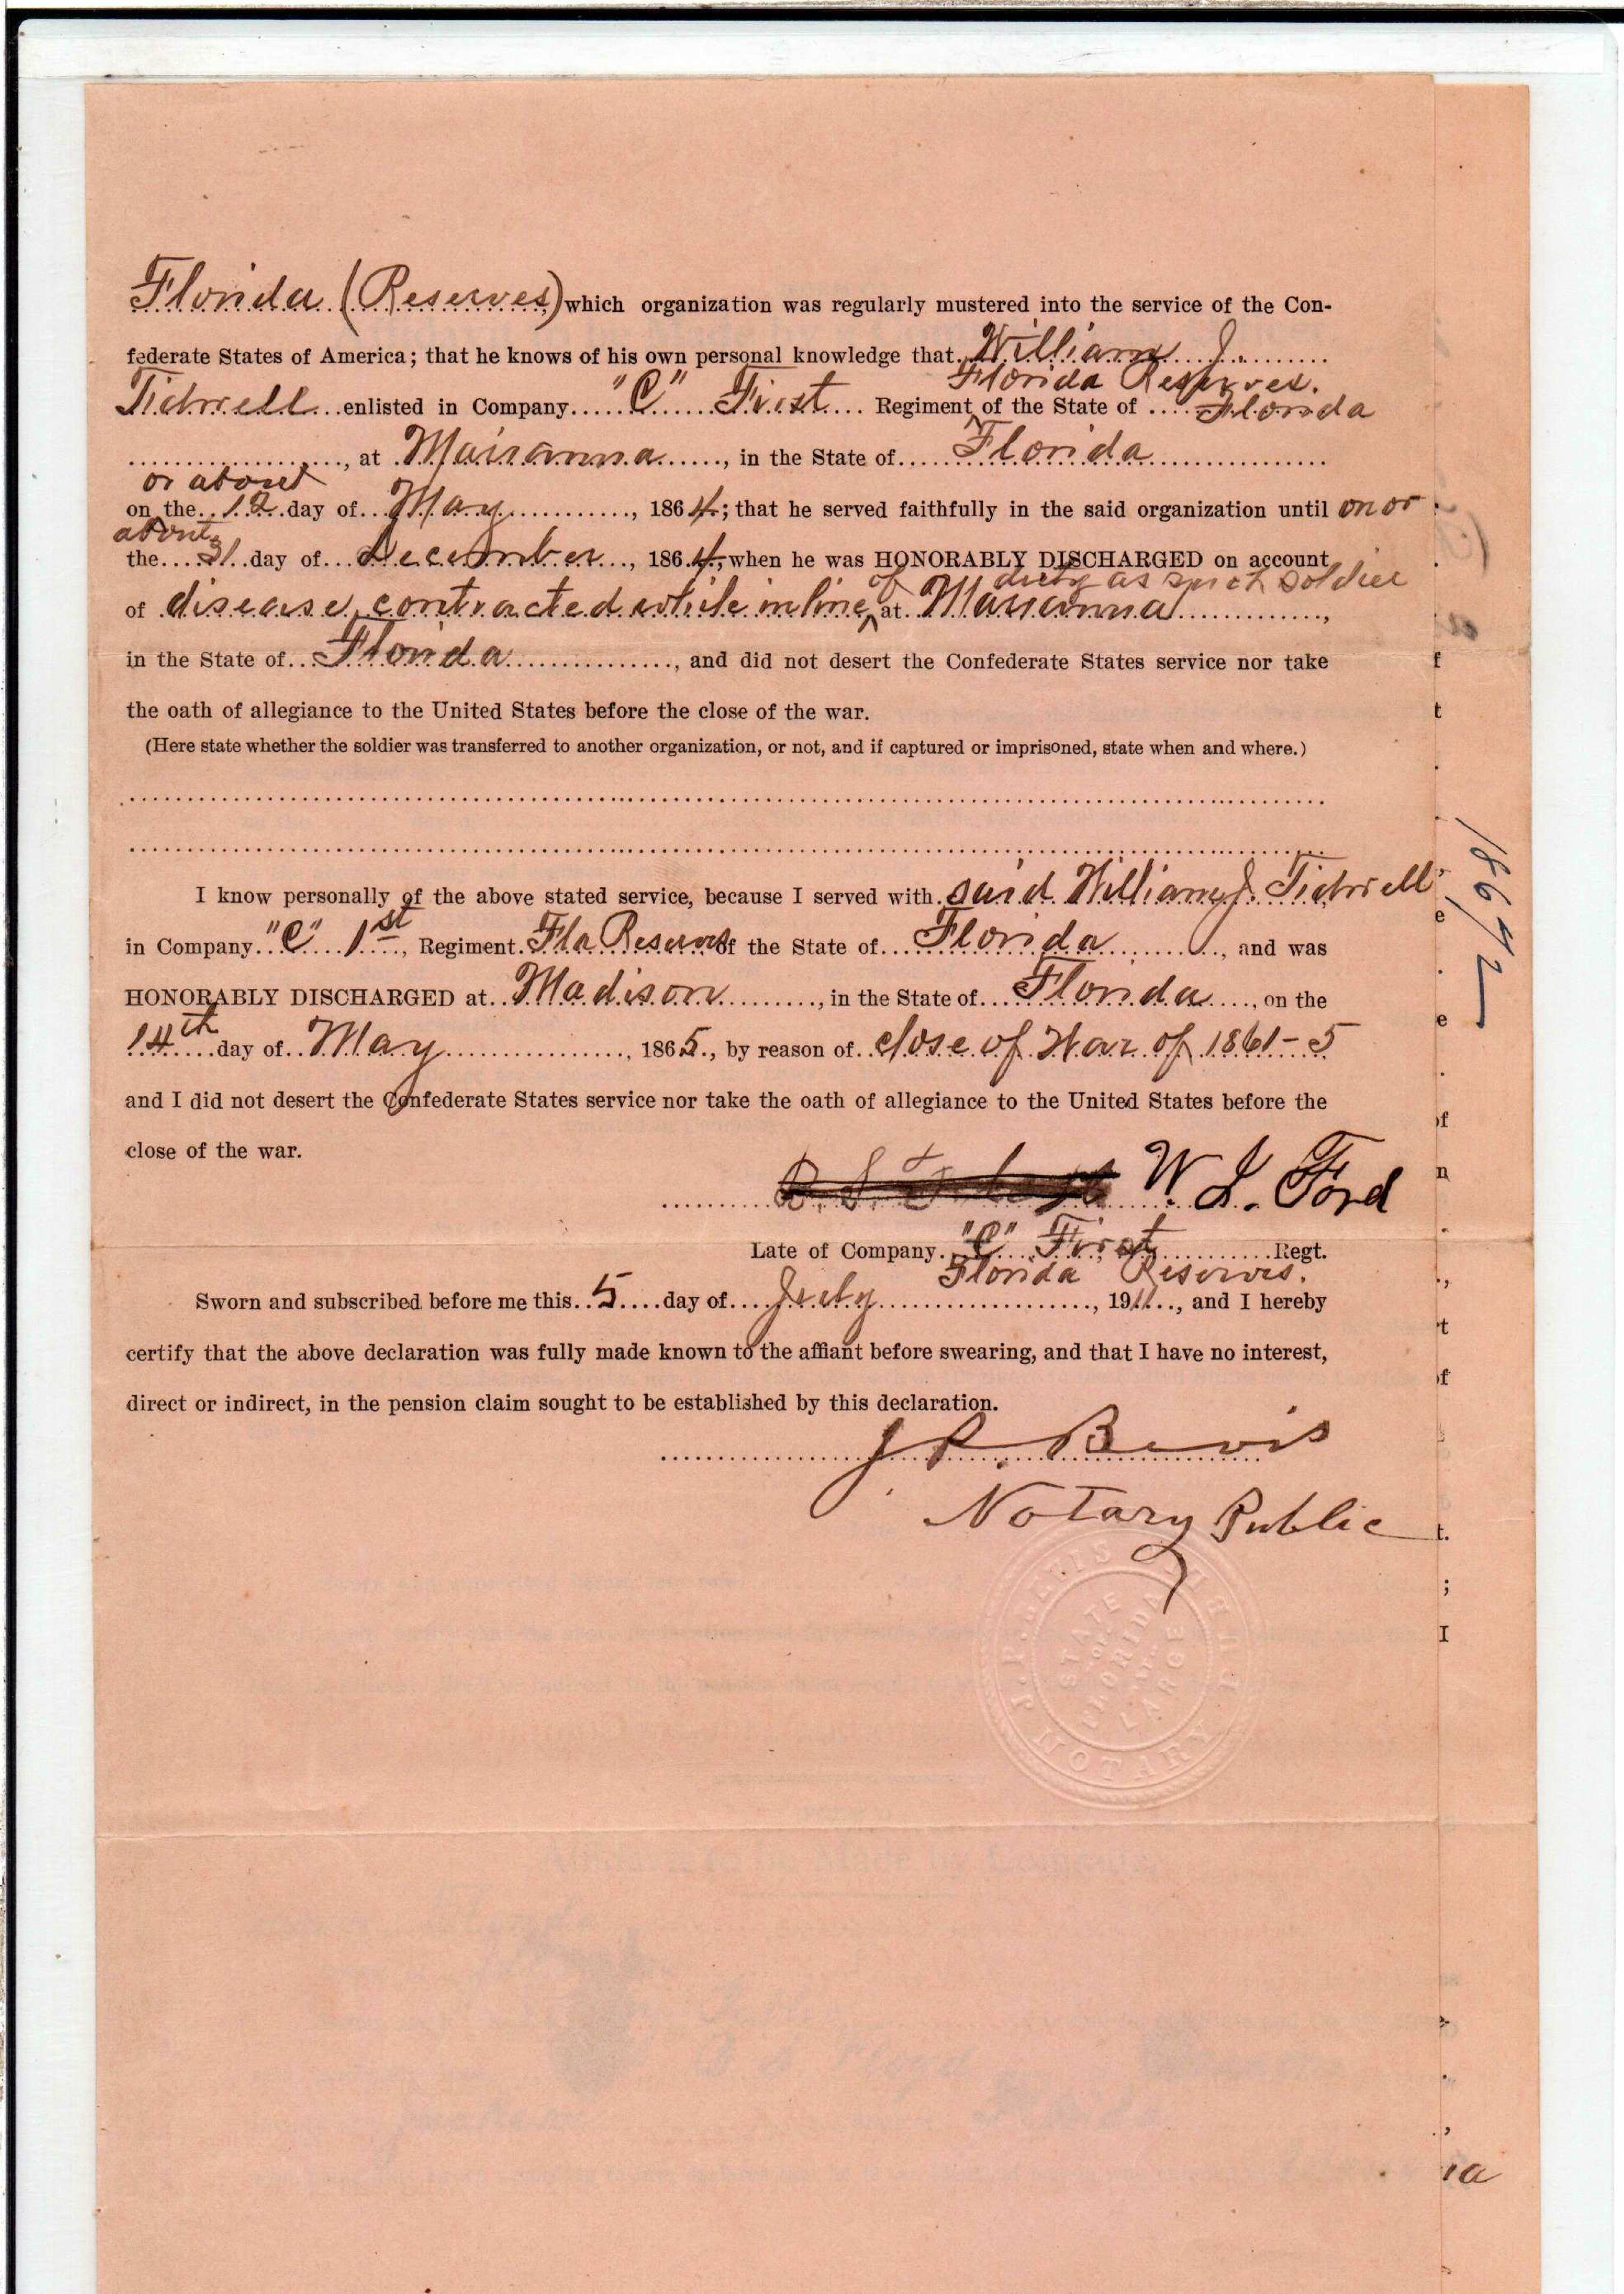 Florida (Reserves) which organization was regularly mustered into the service of the Con-
federate States of America; that he knows of his own personal knowledge that William J.
Florida Reserves.
Tidwell enlisted in Company "C" First Regiment of the State of Florida
, at Marianna, in the State of Florida
or about
on the 12 day of May, 1864; that he served faithfully in the said organization until on or
about
the 31 day of December, 1864, when he was HONORABLY DISCHARGED on account
of duty as such soldier
of disease contracted while in line at Marianna,
in the State of Florida, and did not desert the Confederate States service nor take
the oath of allegiance to the United States before the close of the war.
(Here state whether the soldier was transferred to another organization, or not, and if captured or imprisoned, state when and where.)
I know personally of the above stated service, because I served with said William J. Tidwell
in Company "C" 1st, Regiment Fla Reserves of the State of Florida, and was
HONORABLY DISCHARGED at Madison, in the State of Florida, on the
14th day of May, 1865., by reason of close of War of 1861-5
and I did not desert the Confederate States service nor take the oath of allegiance to the United States before the
close of the war.
W. L. Ford
Late of Company "C" First Regt.
Florida Reserves.
Sworn and subscribed before me this 5 day of July, 1911, and I hereby
certify that the above declaration was fully made known to the affiant before swearing, and that I have no interest,
direct or indirect, in the pension claim sought to be established by this declaration.
J. P. Bevis
Notary Public
J. P. BEVIS NOTARY PUBLIC
STATE OF FLORIDA AT LARGE
f
t
e
e
of
n
t
of
t.
;
I
ia